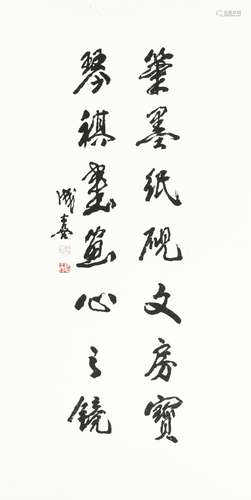 筆墨紙硯文房寶
琴祺書画心之鏡
成喜